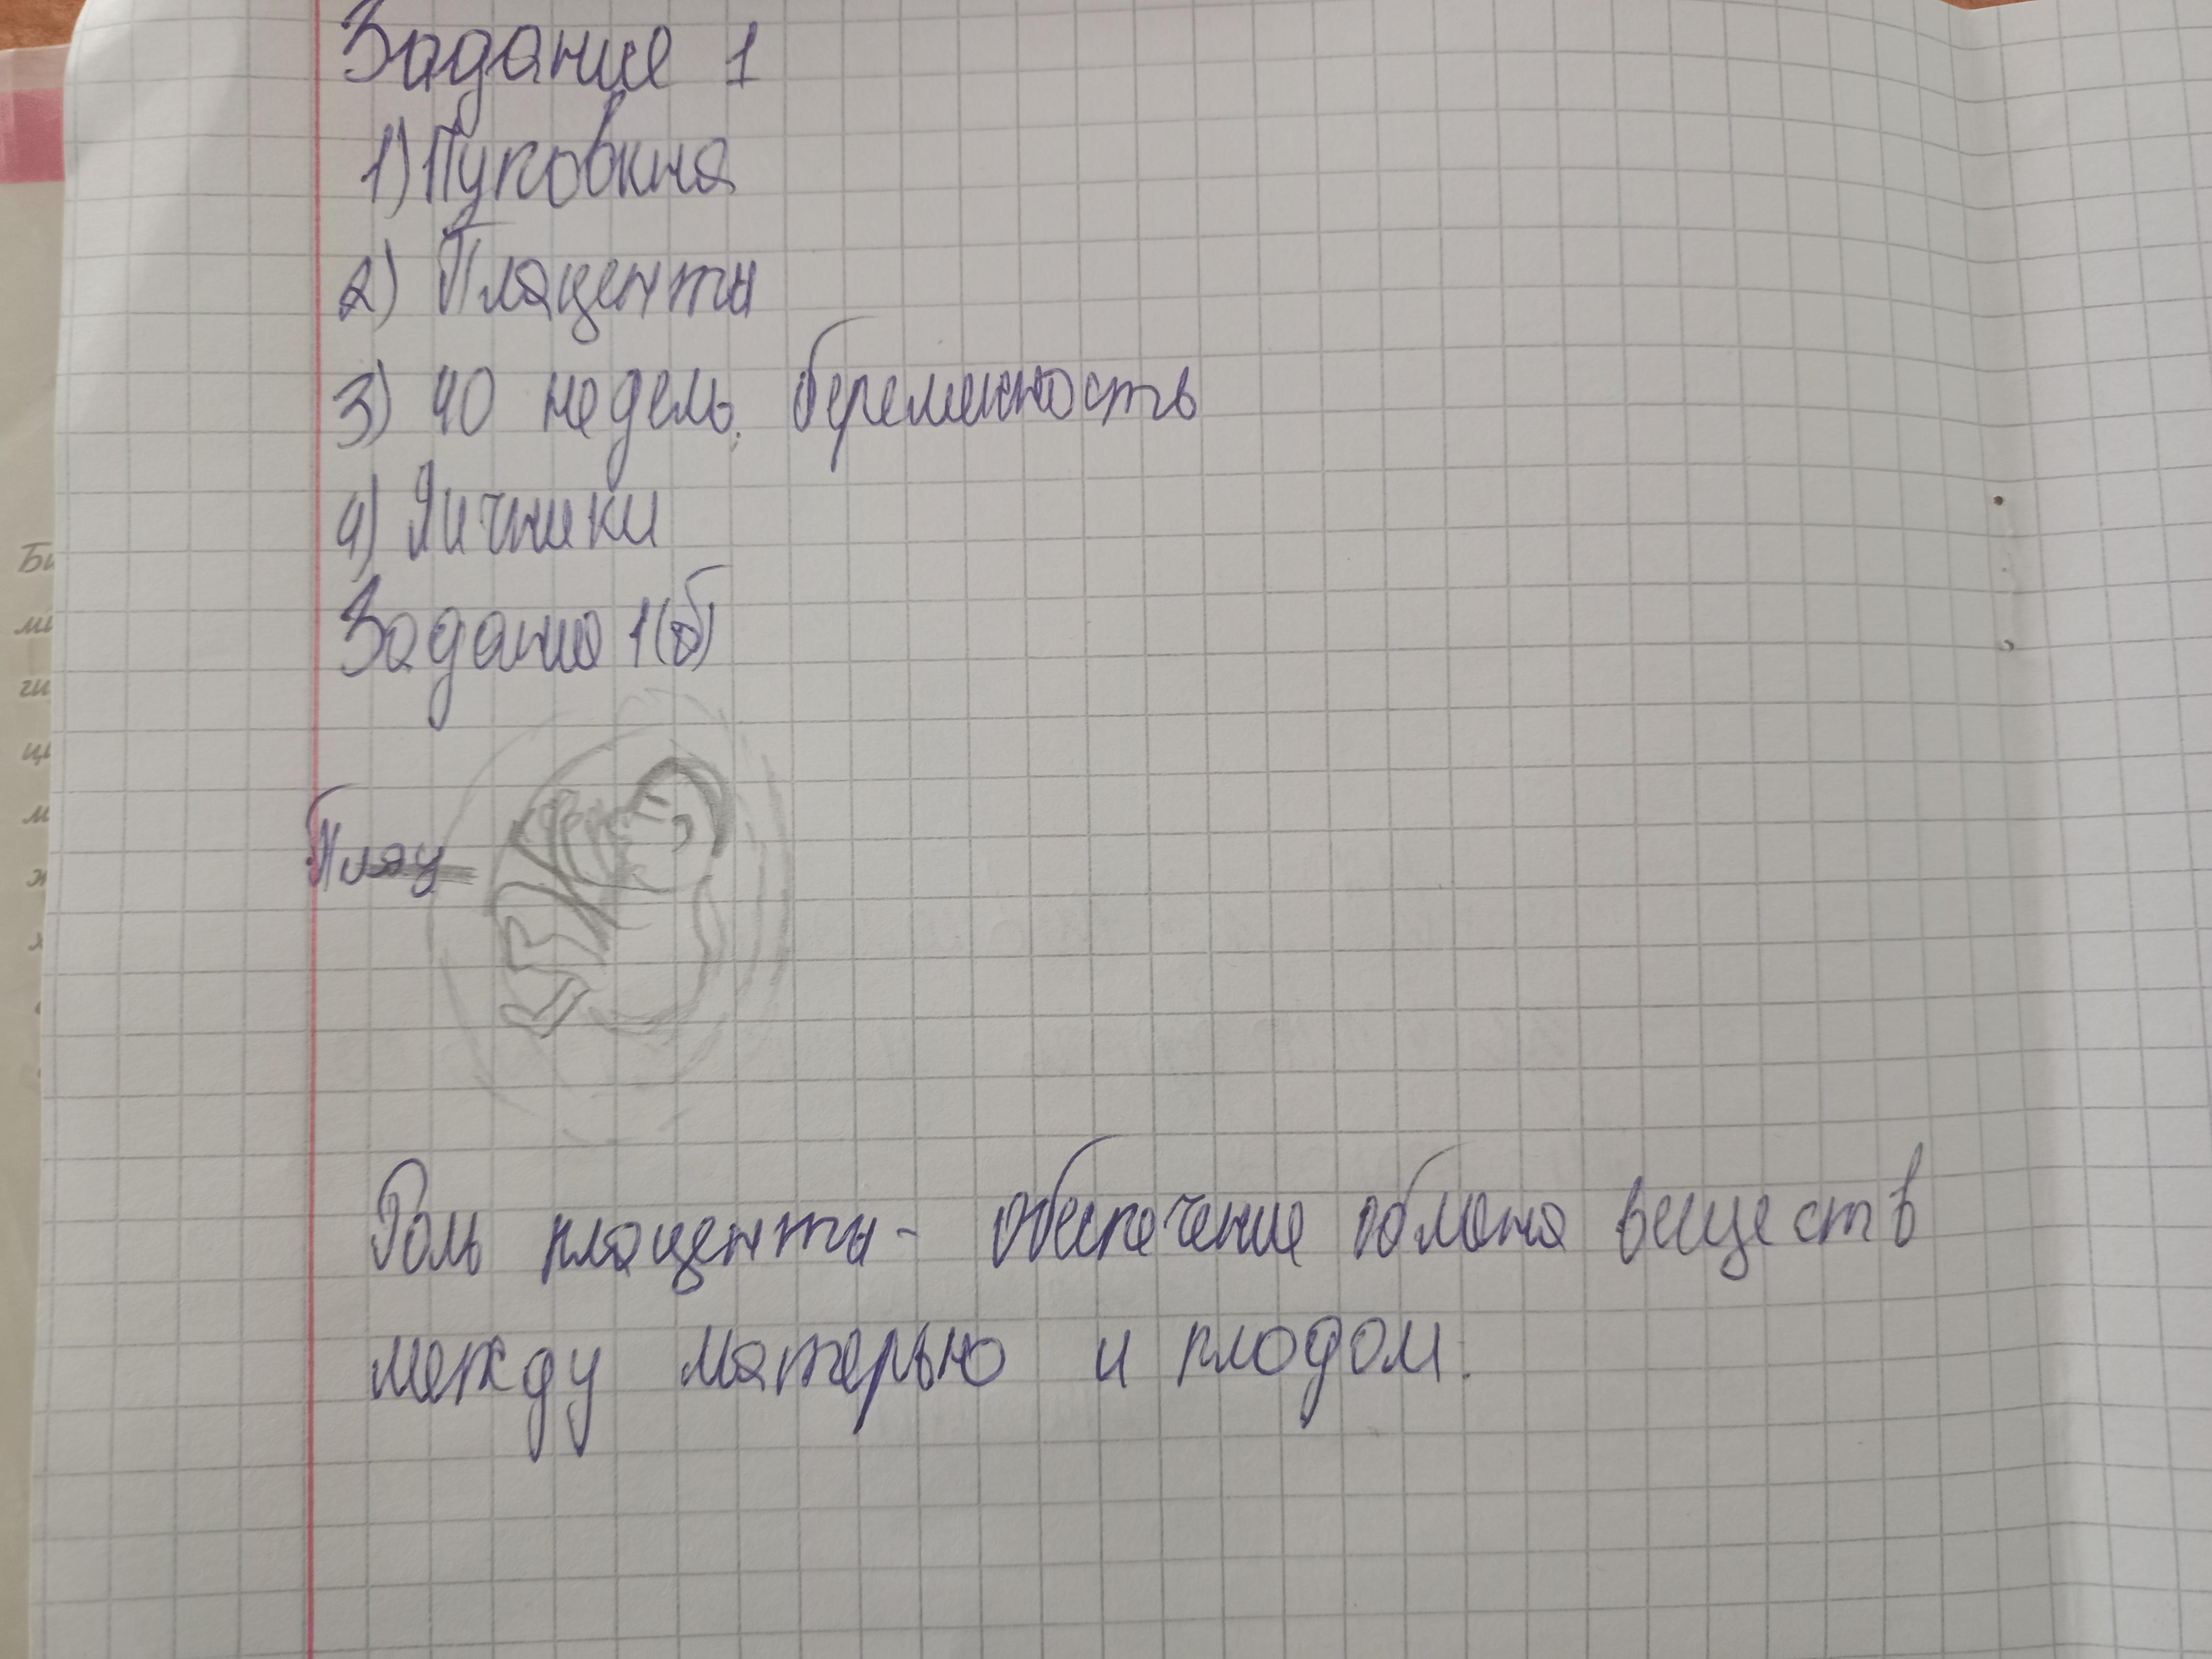 Задание 1
1) Пуповина
2) Плаценты
3) 40 недель. беременность
4) Яичники
Задание 1(б)
Плац
Роль плаценты - обеспечение обмена веществ
между матерью и плодом.